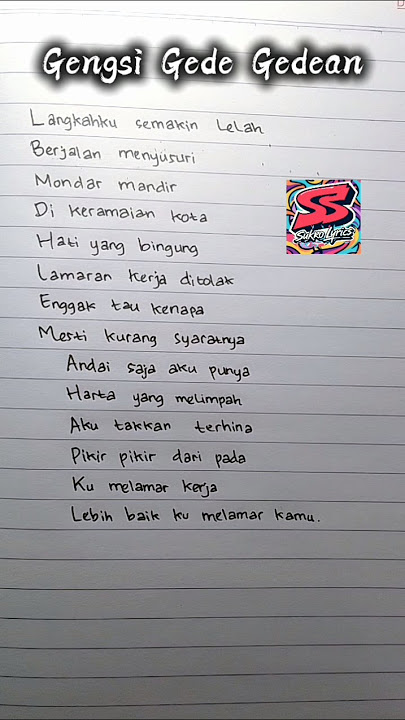 Gengsi Gede Gedean
Langkahku semakin Lelah
Berjalan menyusuri
Mondar mandir
Di keramaian kota
Hati yang bingung
Lamaran kerja ditolak
Enggak tau kenapa
Mesti kurang syaratnya
Andai saja aku punya
Harta yang melimpah
Aku takkan terhina
Pikir pikir dari pada
Ku melamar kerja
Lebih baik ku melamar kamu.
SS
Sukro Lyrics